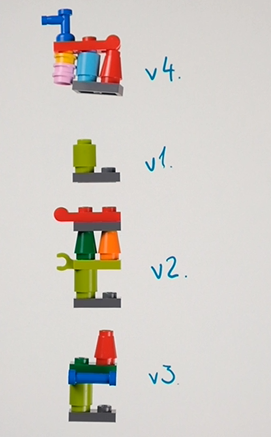 v4.
v1.
v2.
v3.